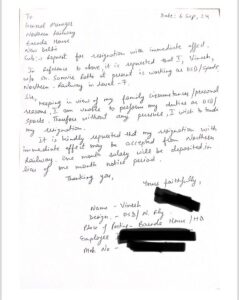 To Date: 6 Sep, 24
General Manager
Northern Railway
Baroda House
New Delhi
Sub: Request for resignation with immediate effect.
In reference to above, it is requested that I, Vinesh,
w/o Sh. Somvir Rathi at present is working as OSD/Sports
Northern - Railway in Level - 7.
Sir,
Keeping in view of my family circumstances/personal
reasons, I am unable to perform my duties as OSD/
Sports. Therefore without any pressure, I wish to tender
my resignation.
It is kindly requested that my resignation with
immediate effect may be accepted from Northern
Railway. One month salary will be deposited in
lieu of one month notice period.
Thanking you,
Yours faithfully,
Name - Vinesh
Design. - OSD/ N. Rly
Place of Posting - Baroda House / HQ
Employee
Mob No -